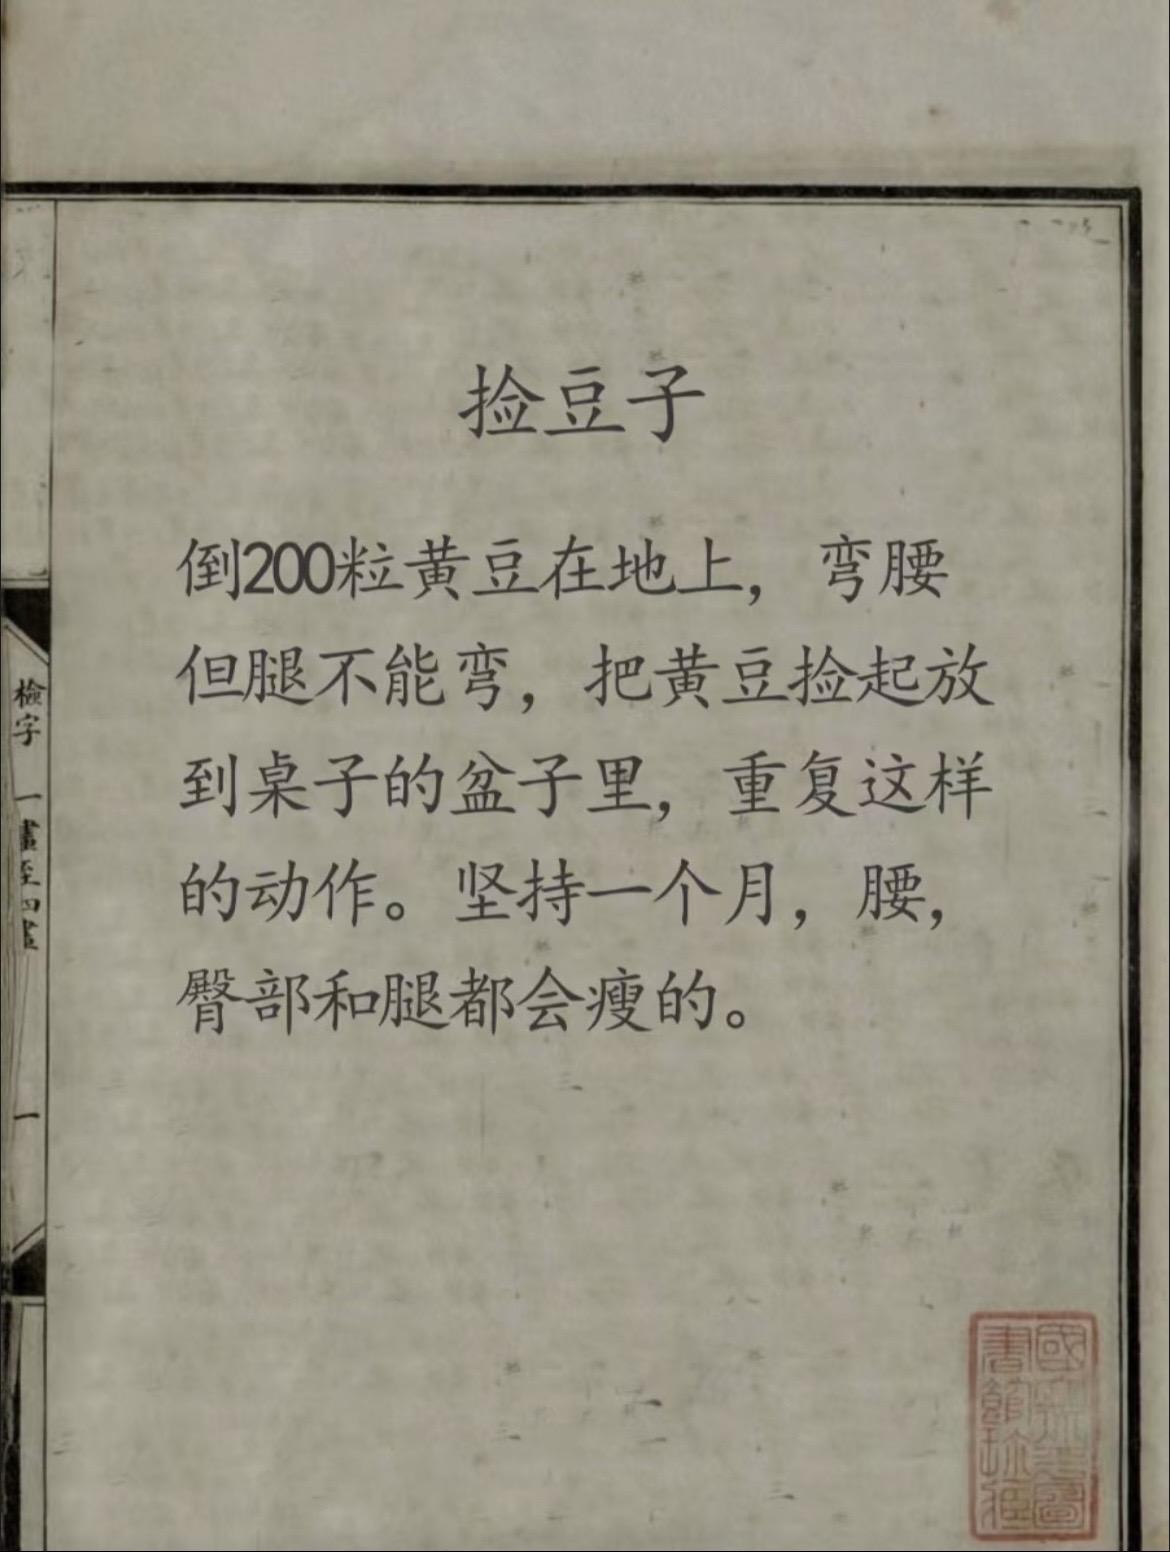 捡豆子
倒200粒黄豆在地上，弯腰
但腿不能弯，把黄豆捡起放
到桌子的盆子里，重复这样
的动作。坚持一个月，腰，
臀部和腿都会瘦的。
檢字
一畫至四畫
一